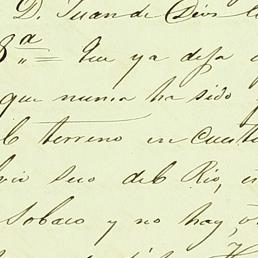 D. Juan de Dios
8ª Que ya deja
que nunca ha sido
terreno en cuesti
seco del Rio, en
Sobaco y no hay, o